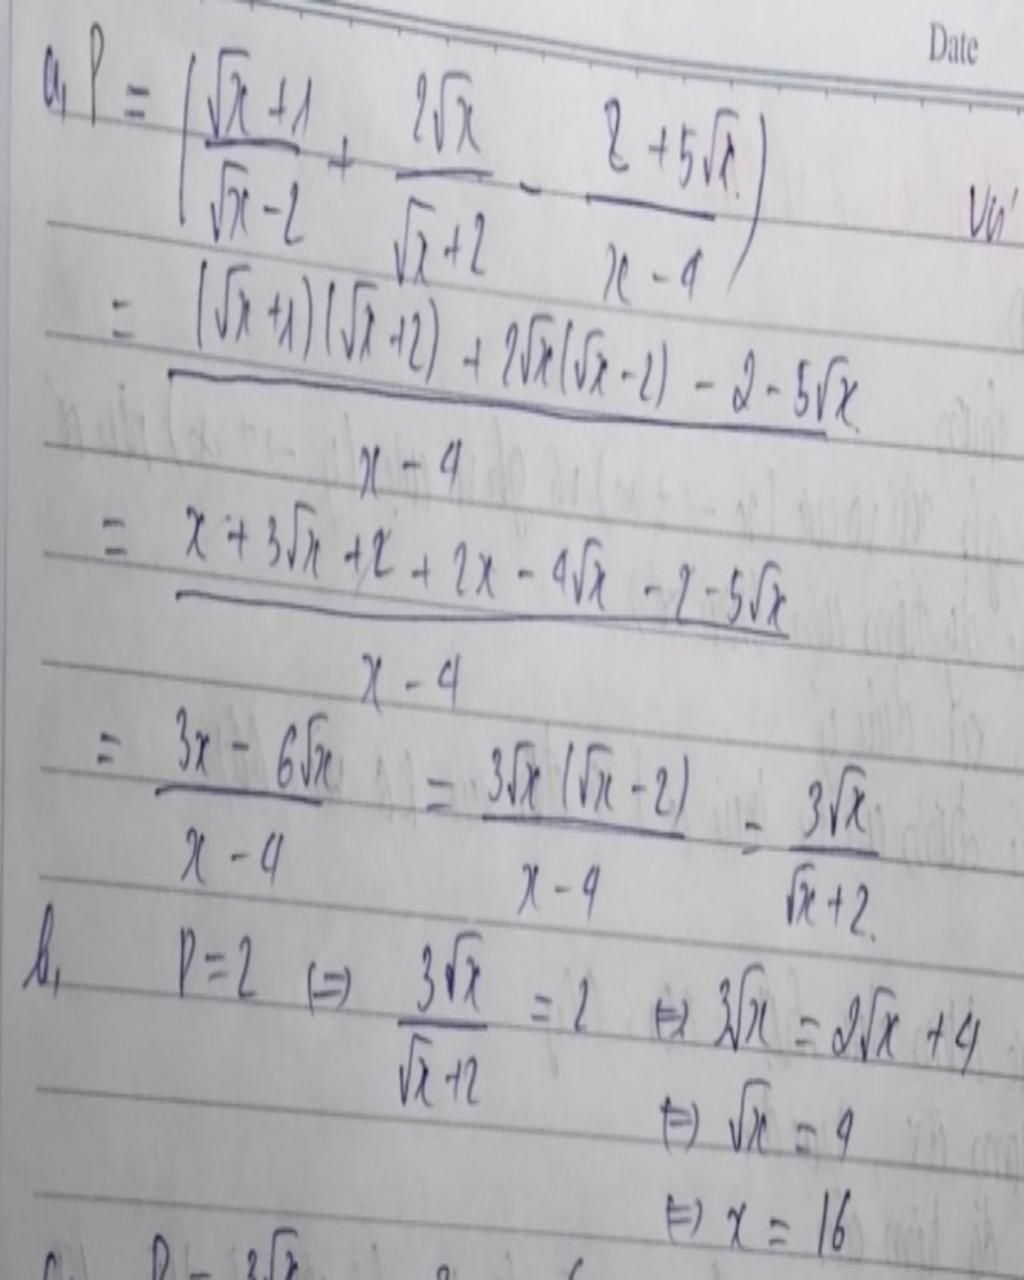 Date
a, P = ( (√x + 1)/(√x - 2) + 2√x/(√x + 2) - (2 + 5√x)/(x - 4) )
= ((√x + 1)(√x + 2) + 2√x(√x - 2) - 2 - 5√x)/(x - 4)
= (x + 3√x + 2 + 2x - 4√x - 2 - 5√x)/(x - 4)
= (3x - 6√x)/(x - 4) = 3√x(√x - 2)/(x - 4) = 3√x/(√x + 2).
b, P = 2 (=) 3√x/(√x + 2) = 2 (=) 3√x = 2√x + 4
(=) √x = 4
(=) x = 16